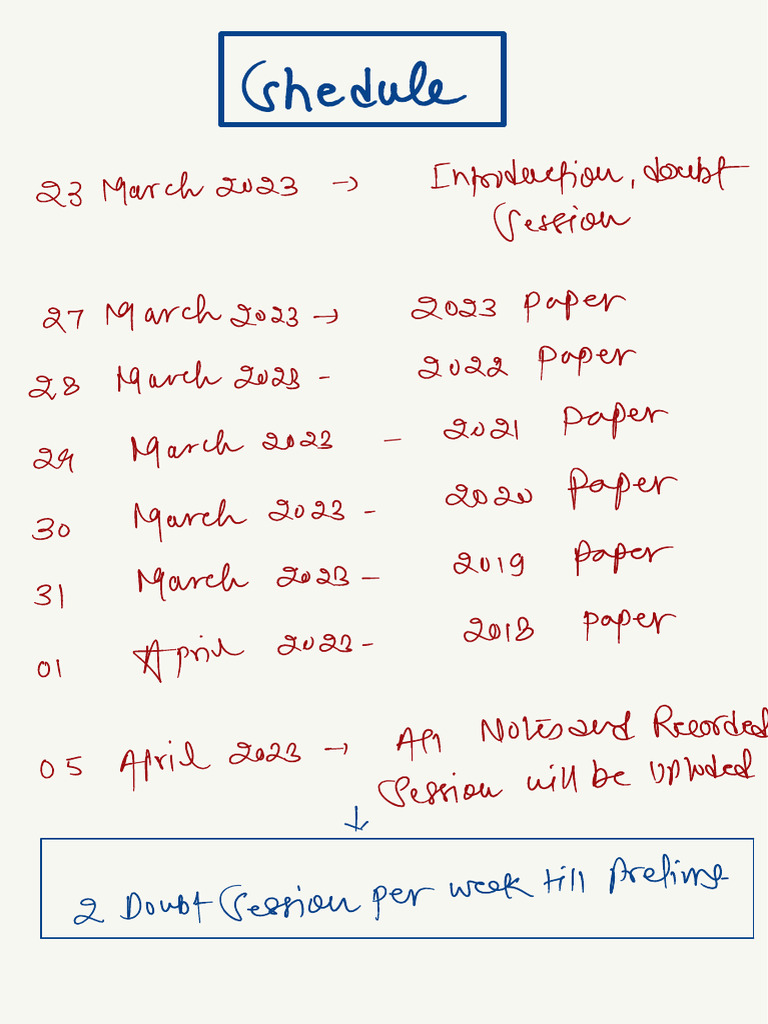 Shedule
23 March 2023 → Introduction, doubt
Session
27 March 2023 → 2023 paper
28 March 2023 - 2022 paper
29 March 2023 - 2021 paper
30 March 2023 - 2020 paper
31 March 2023 - 2019 paper
01 April 2023 - 2018 paper
05 April 2023 → All Notes and Recorded
Session will be Uploded
↓
2 Doubt Session per week till Prelims